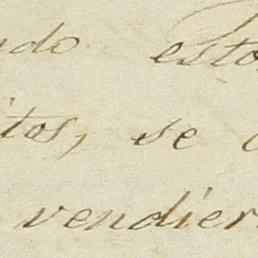 ndo esto
itos, se
vendier